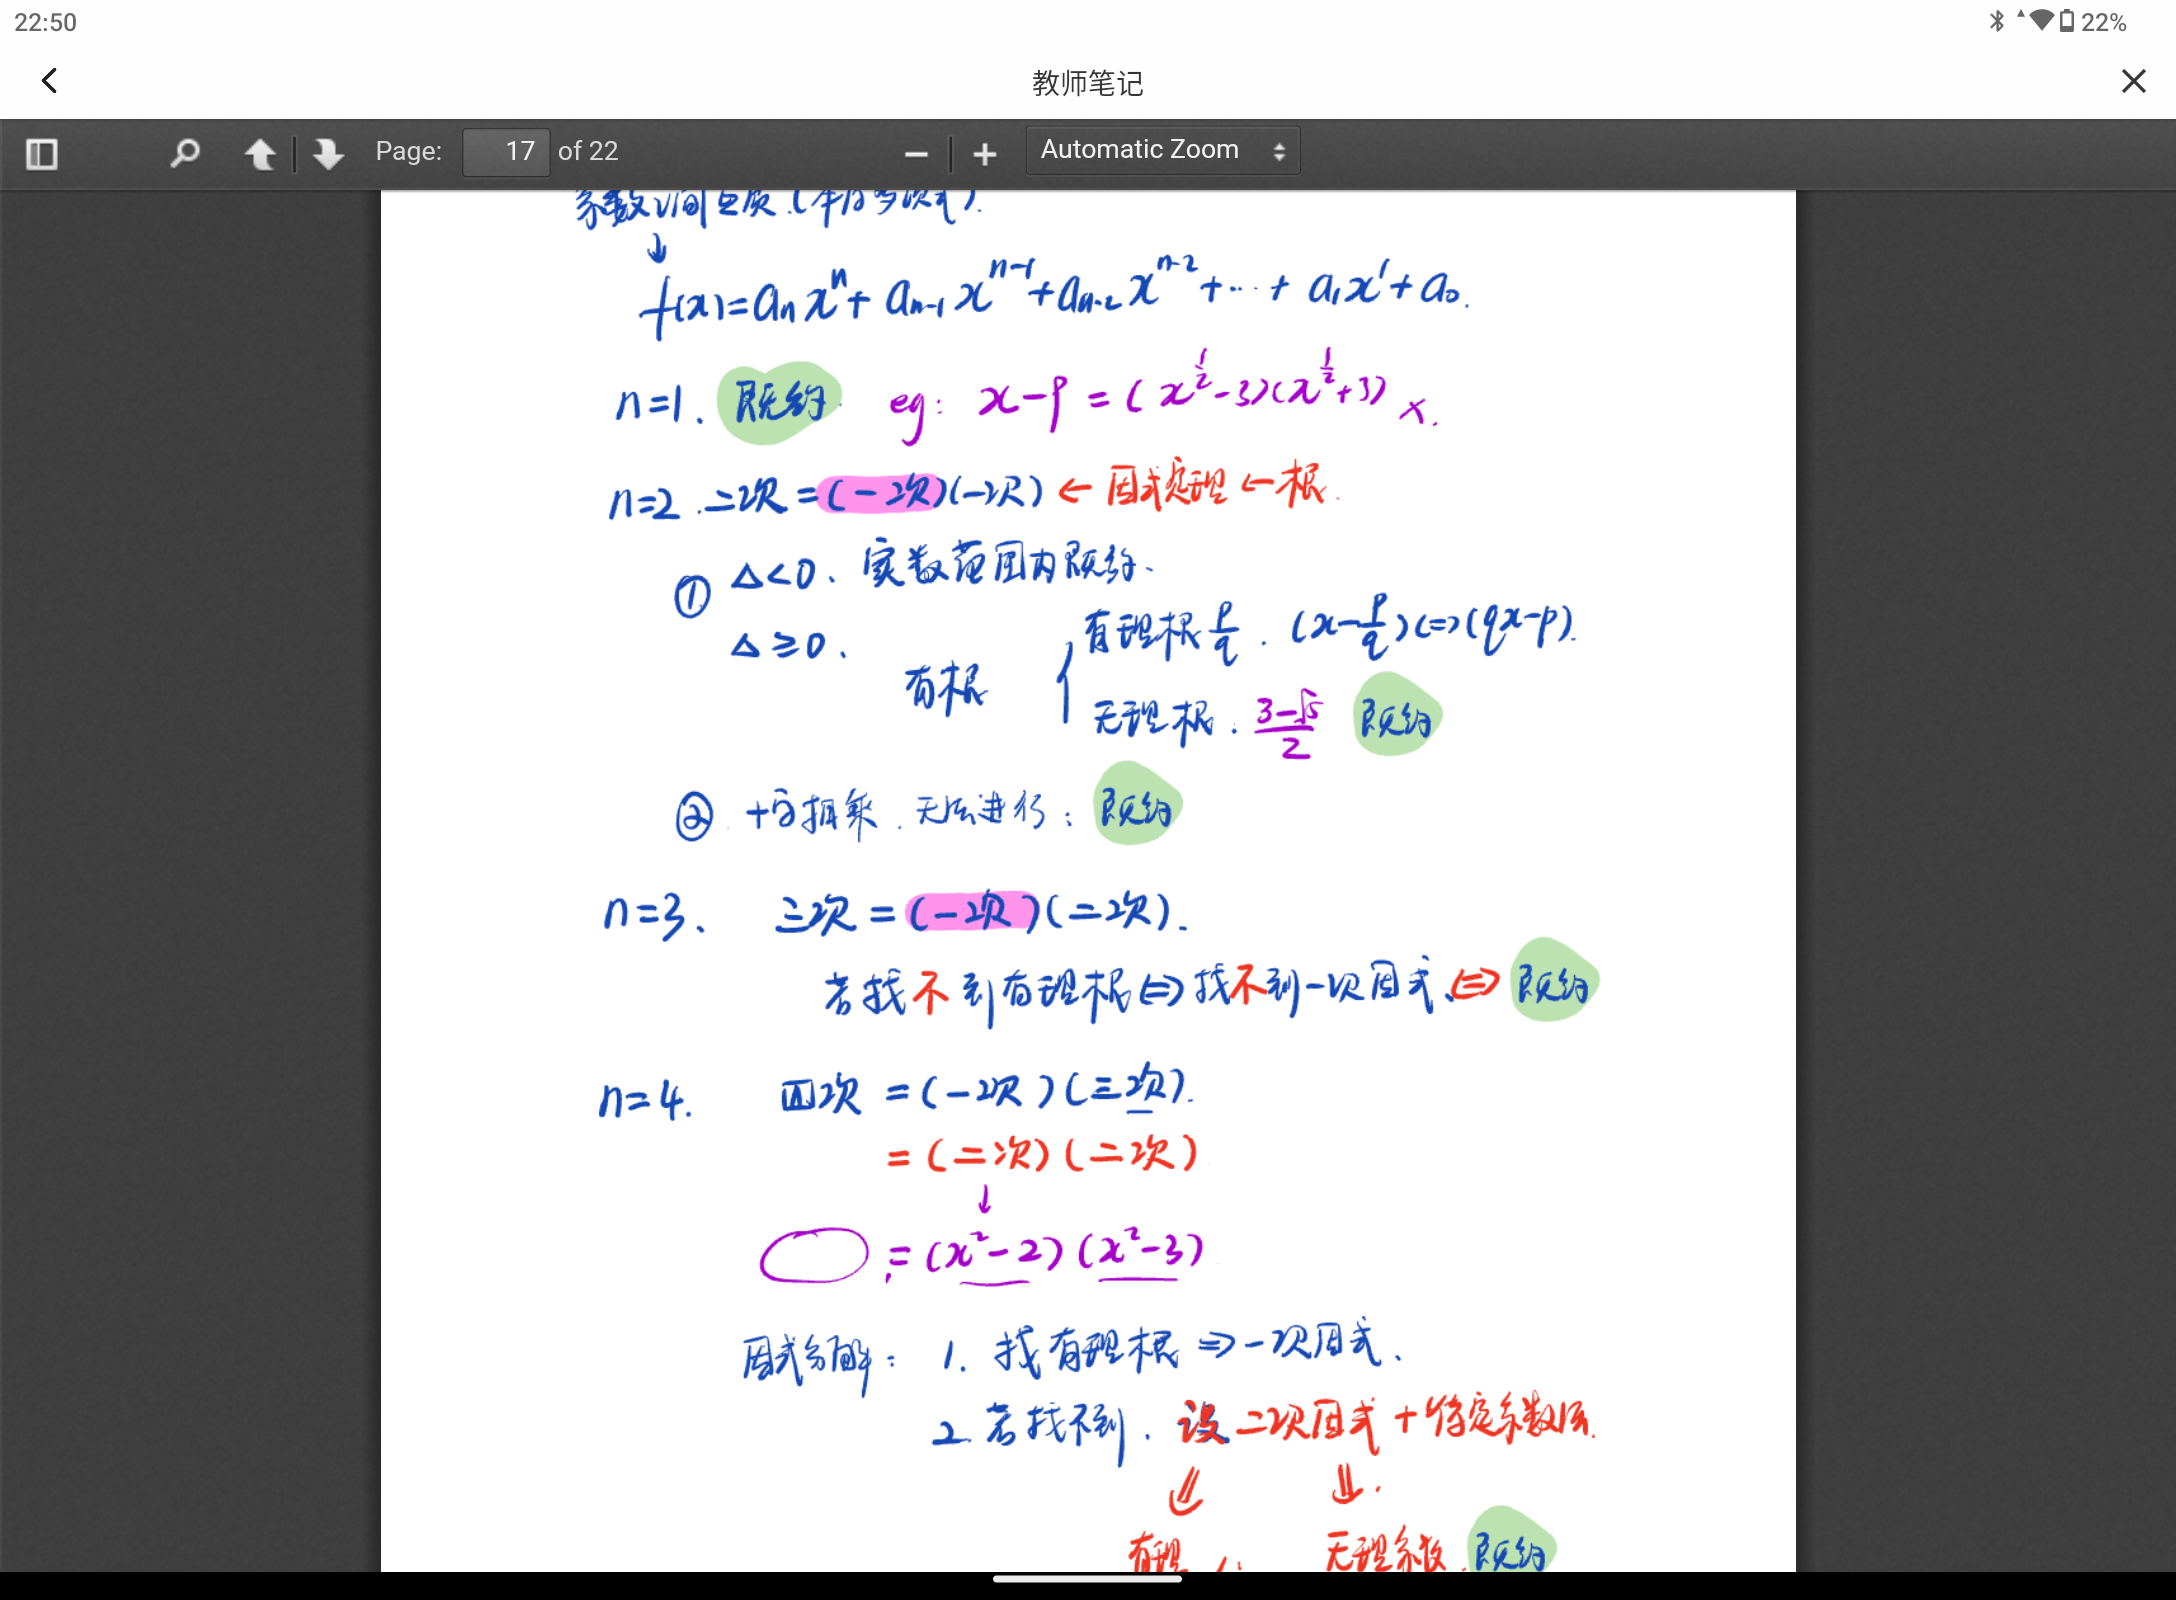 22:50
22%
教师笔记
Page: 17 of 22
Automatic Zoom
系数之间互质.(本原多项式).
↓
f(x)=aₙxⁿ+aₙ₋₁xⁿ⁻¹+aₙ₋₂xⁿ⁻²+…+a₁x¹+a₀.
n=1. 既约 eg: x-9=(x^½-3)(x^½+3) ×.
n=2. 二次=(一次)(一次) ← 因式定理 ← 根.
① Δ<0、实数范围内既约.
Δ≥0、 有根
有理根 p/q . (x-p/q)⇔(qx-p).
无理根: (3-√5)/2 既约
② 十字相乘. 无法进行: 既约
n=3、 三次=(一次)(二次).
若找不到有理根⇔找不到一次因式.⇔ 既约
n=4. 四次=(一次)(三次).
=(二次)(二次)
↓
=(x²-2)(x²-3)
因式分解: 1. 找有理根⇒一次因式.
2. 若找不到. 设二次因式+待定系数法.
⇓ ⇓.
有理 无理系数. 既约